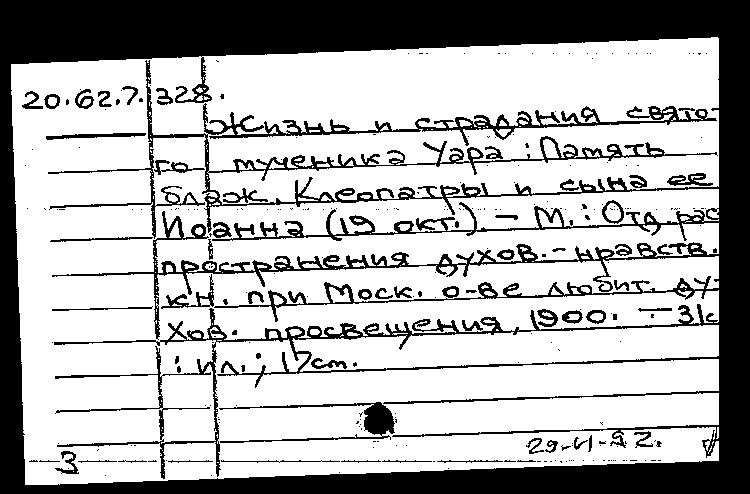 20.62.7.328.
Жизнь и страдания свято-
го мученика Уара : Память
блаж. Клеопатры и сына ее
Иоанна (19 окт.). – М. : Отд. рас
пространения духов.-нравств.
кн. при Моск. о-ве любит. ду-
хов. просвещения, 1900. – 31с
: ил. ; 17см.
3